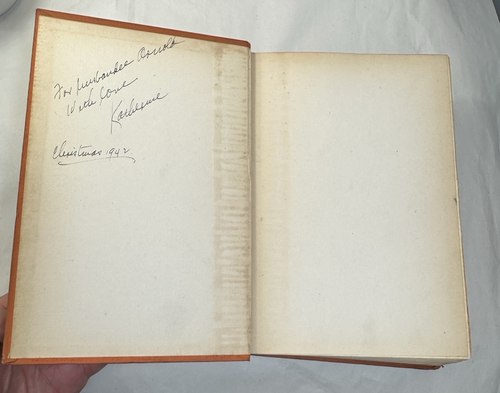 For husbandee Arnold
With Love
Katherine
Christmas 1942